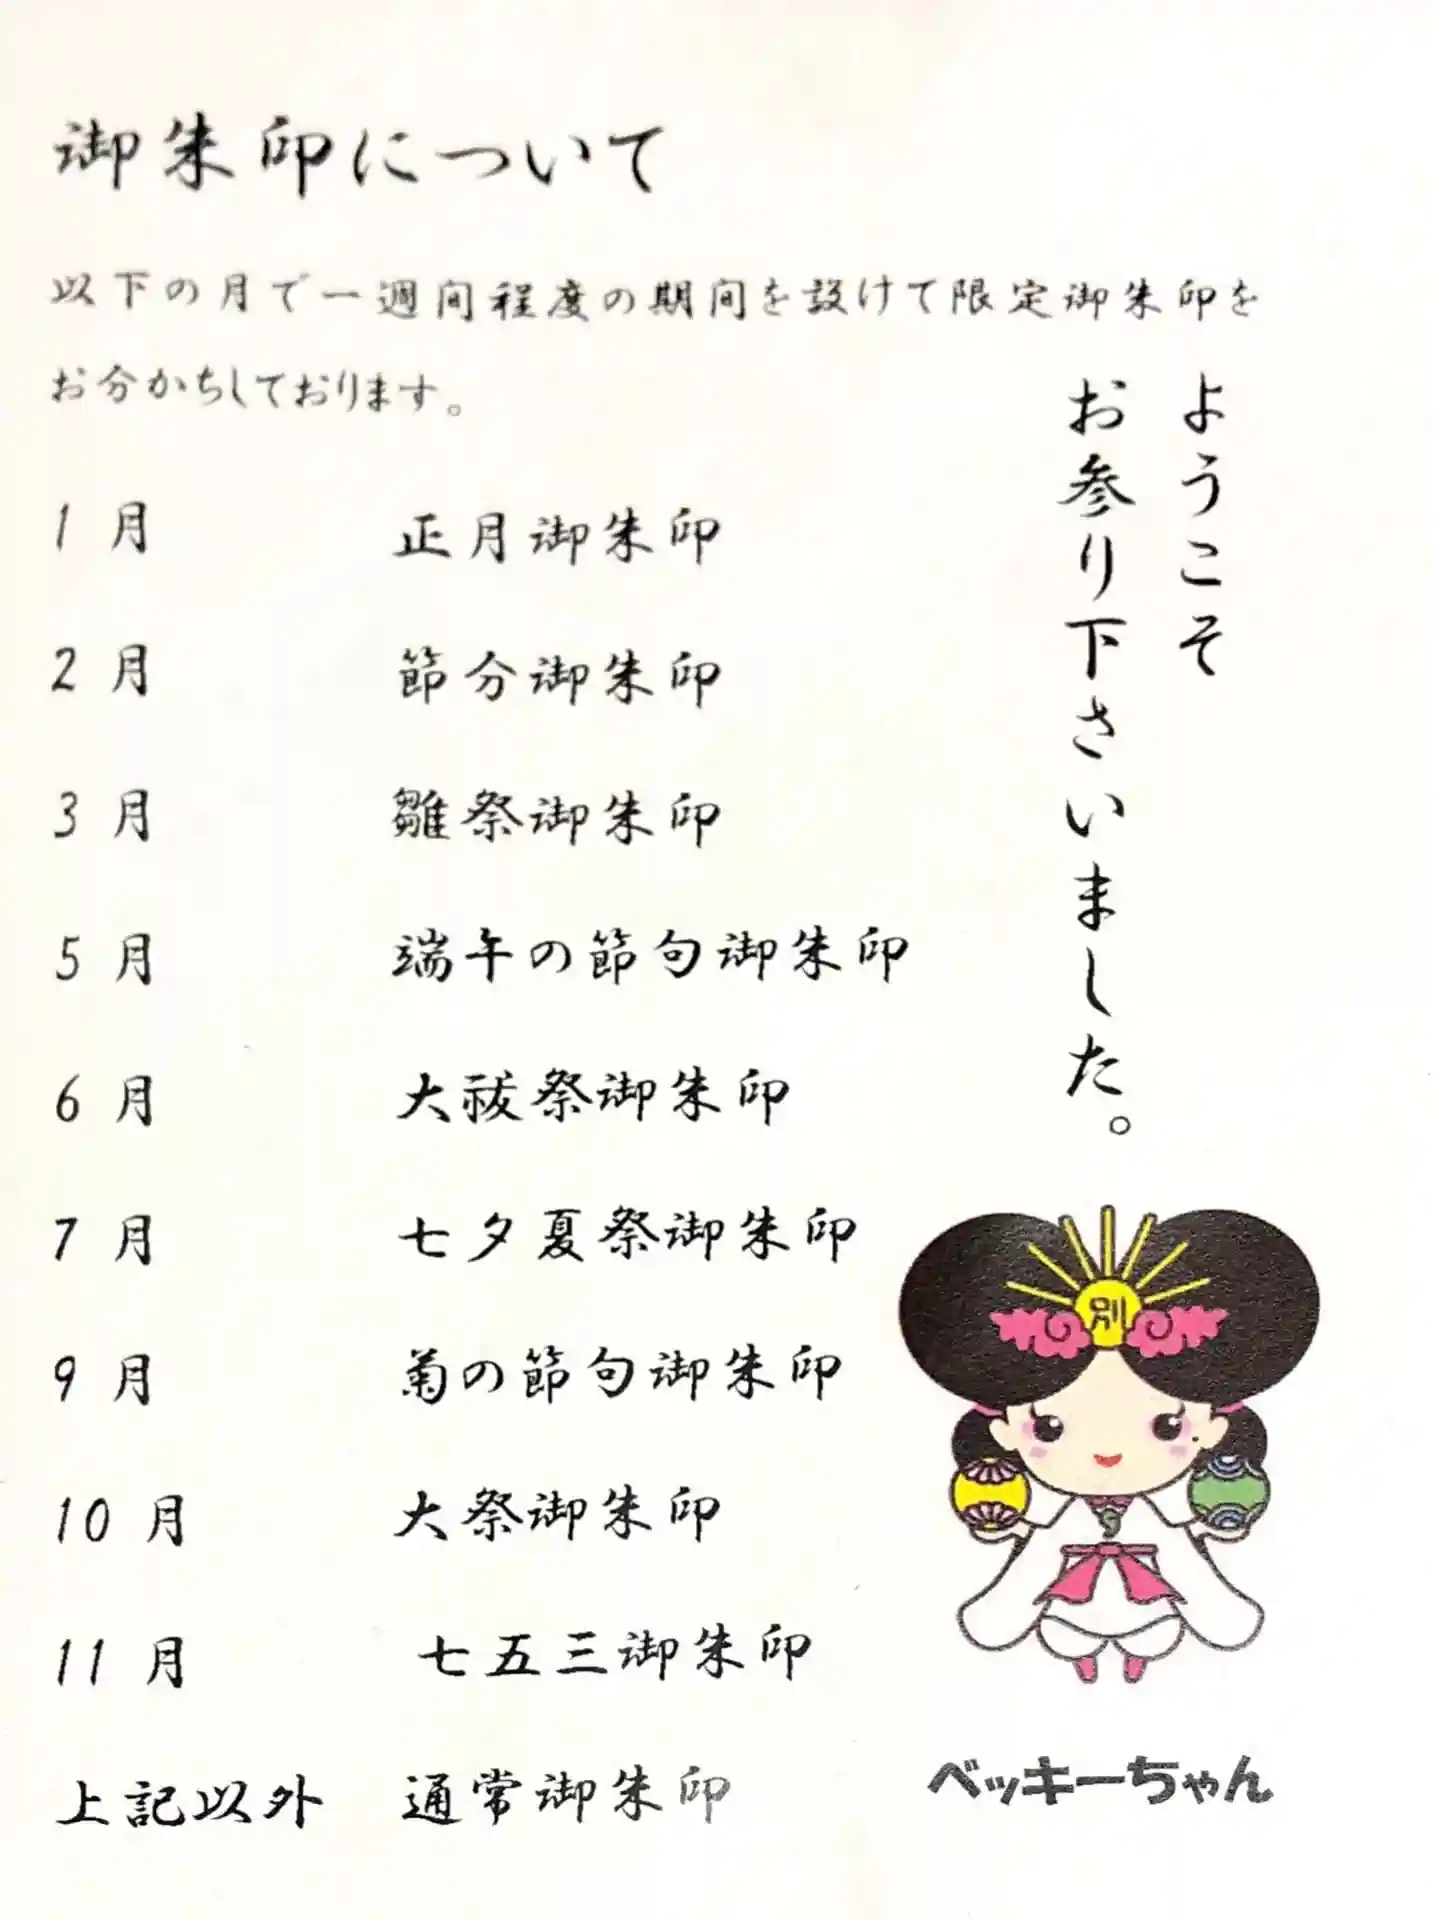 御朱印について
以下の月で一週間程度の期間を設けて限定御朱印を
お分かちしております。
ようこそ
お参り下さいました。
1月 正月御朱印
2月 節分御朱印
3月 雛祭御朱印
5月 端午の節句御朱印
6月 大祓祭御朱印
7月 七夕夏祭御朱印
9月 菊の節句御朱印
10月 大祭御朱印
11月 七五三御朱印
上記以外 通常御朱印
別
ベッキーちゃん